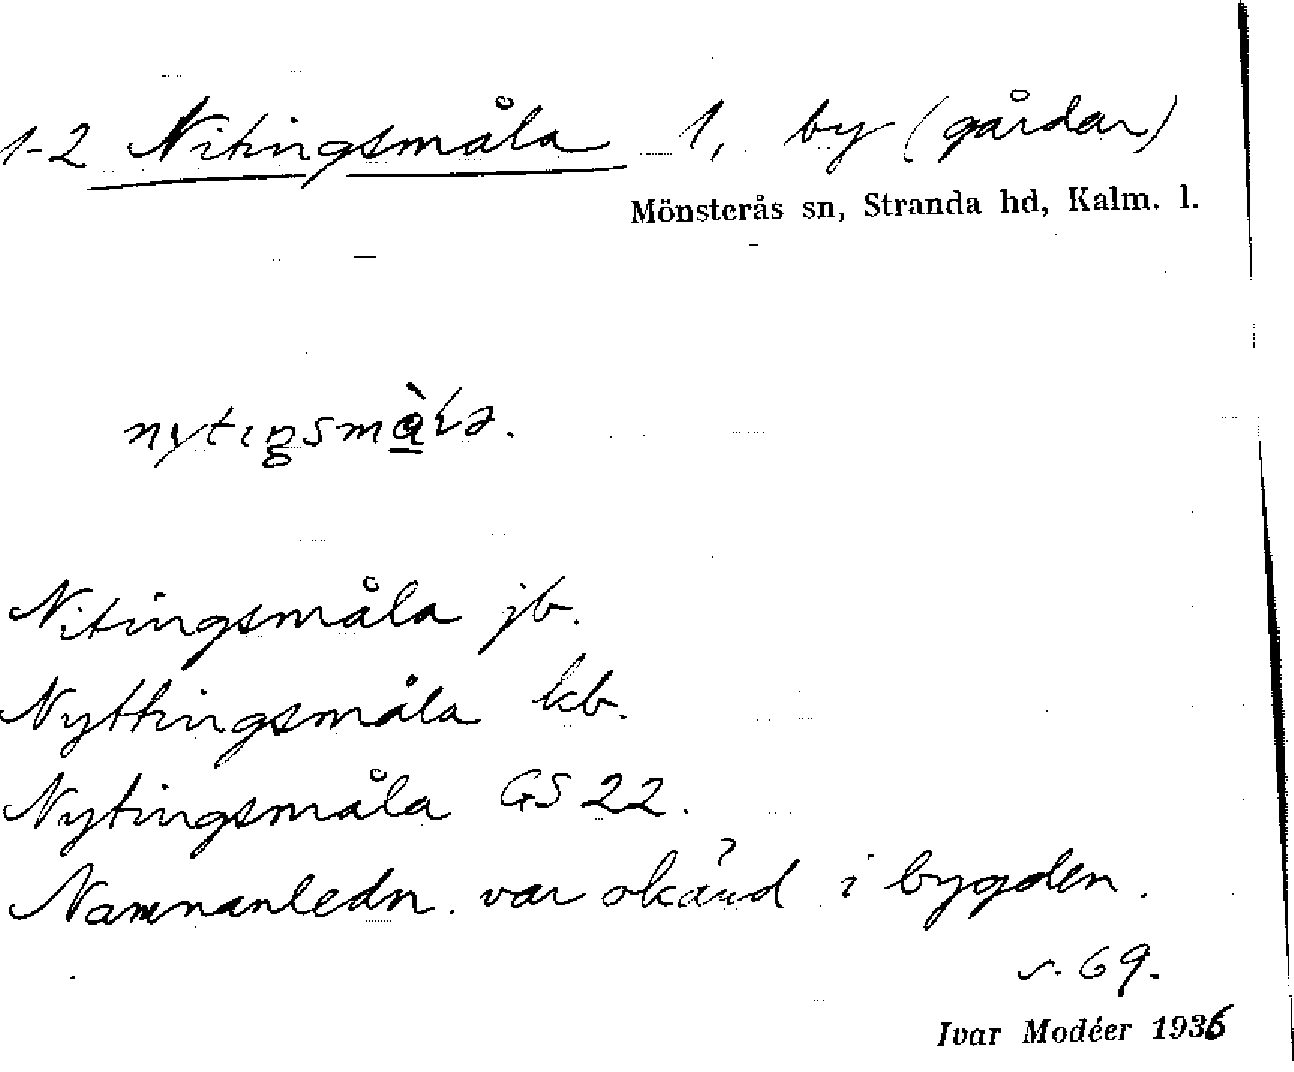 1-2 Nitingsmåla 1, by (gårdar)
Mönsterås sn, Stranda hd, Kalm. l.
Nitingsmåla jb.
Nyttingsmåla kb.
Nytingsmåla GS 22.
Namnanledn. var okänd i bygden.
s. 69.
Ivar Modéer 1936